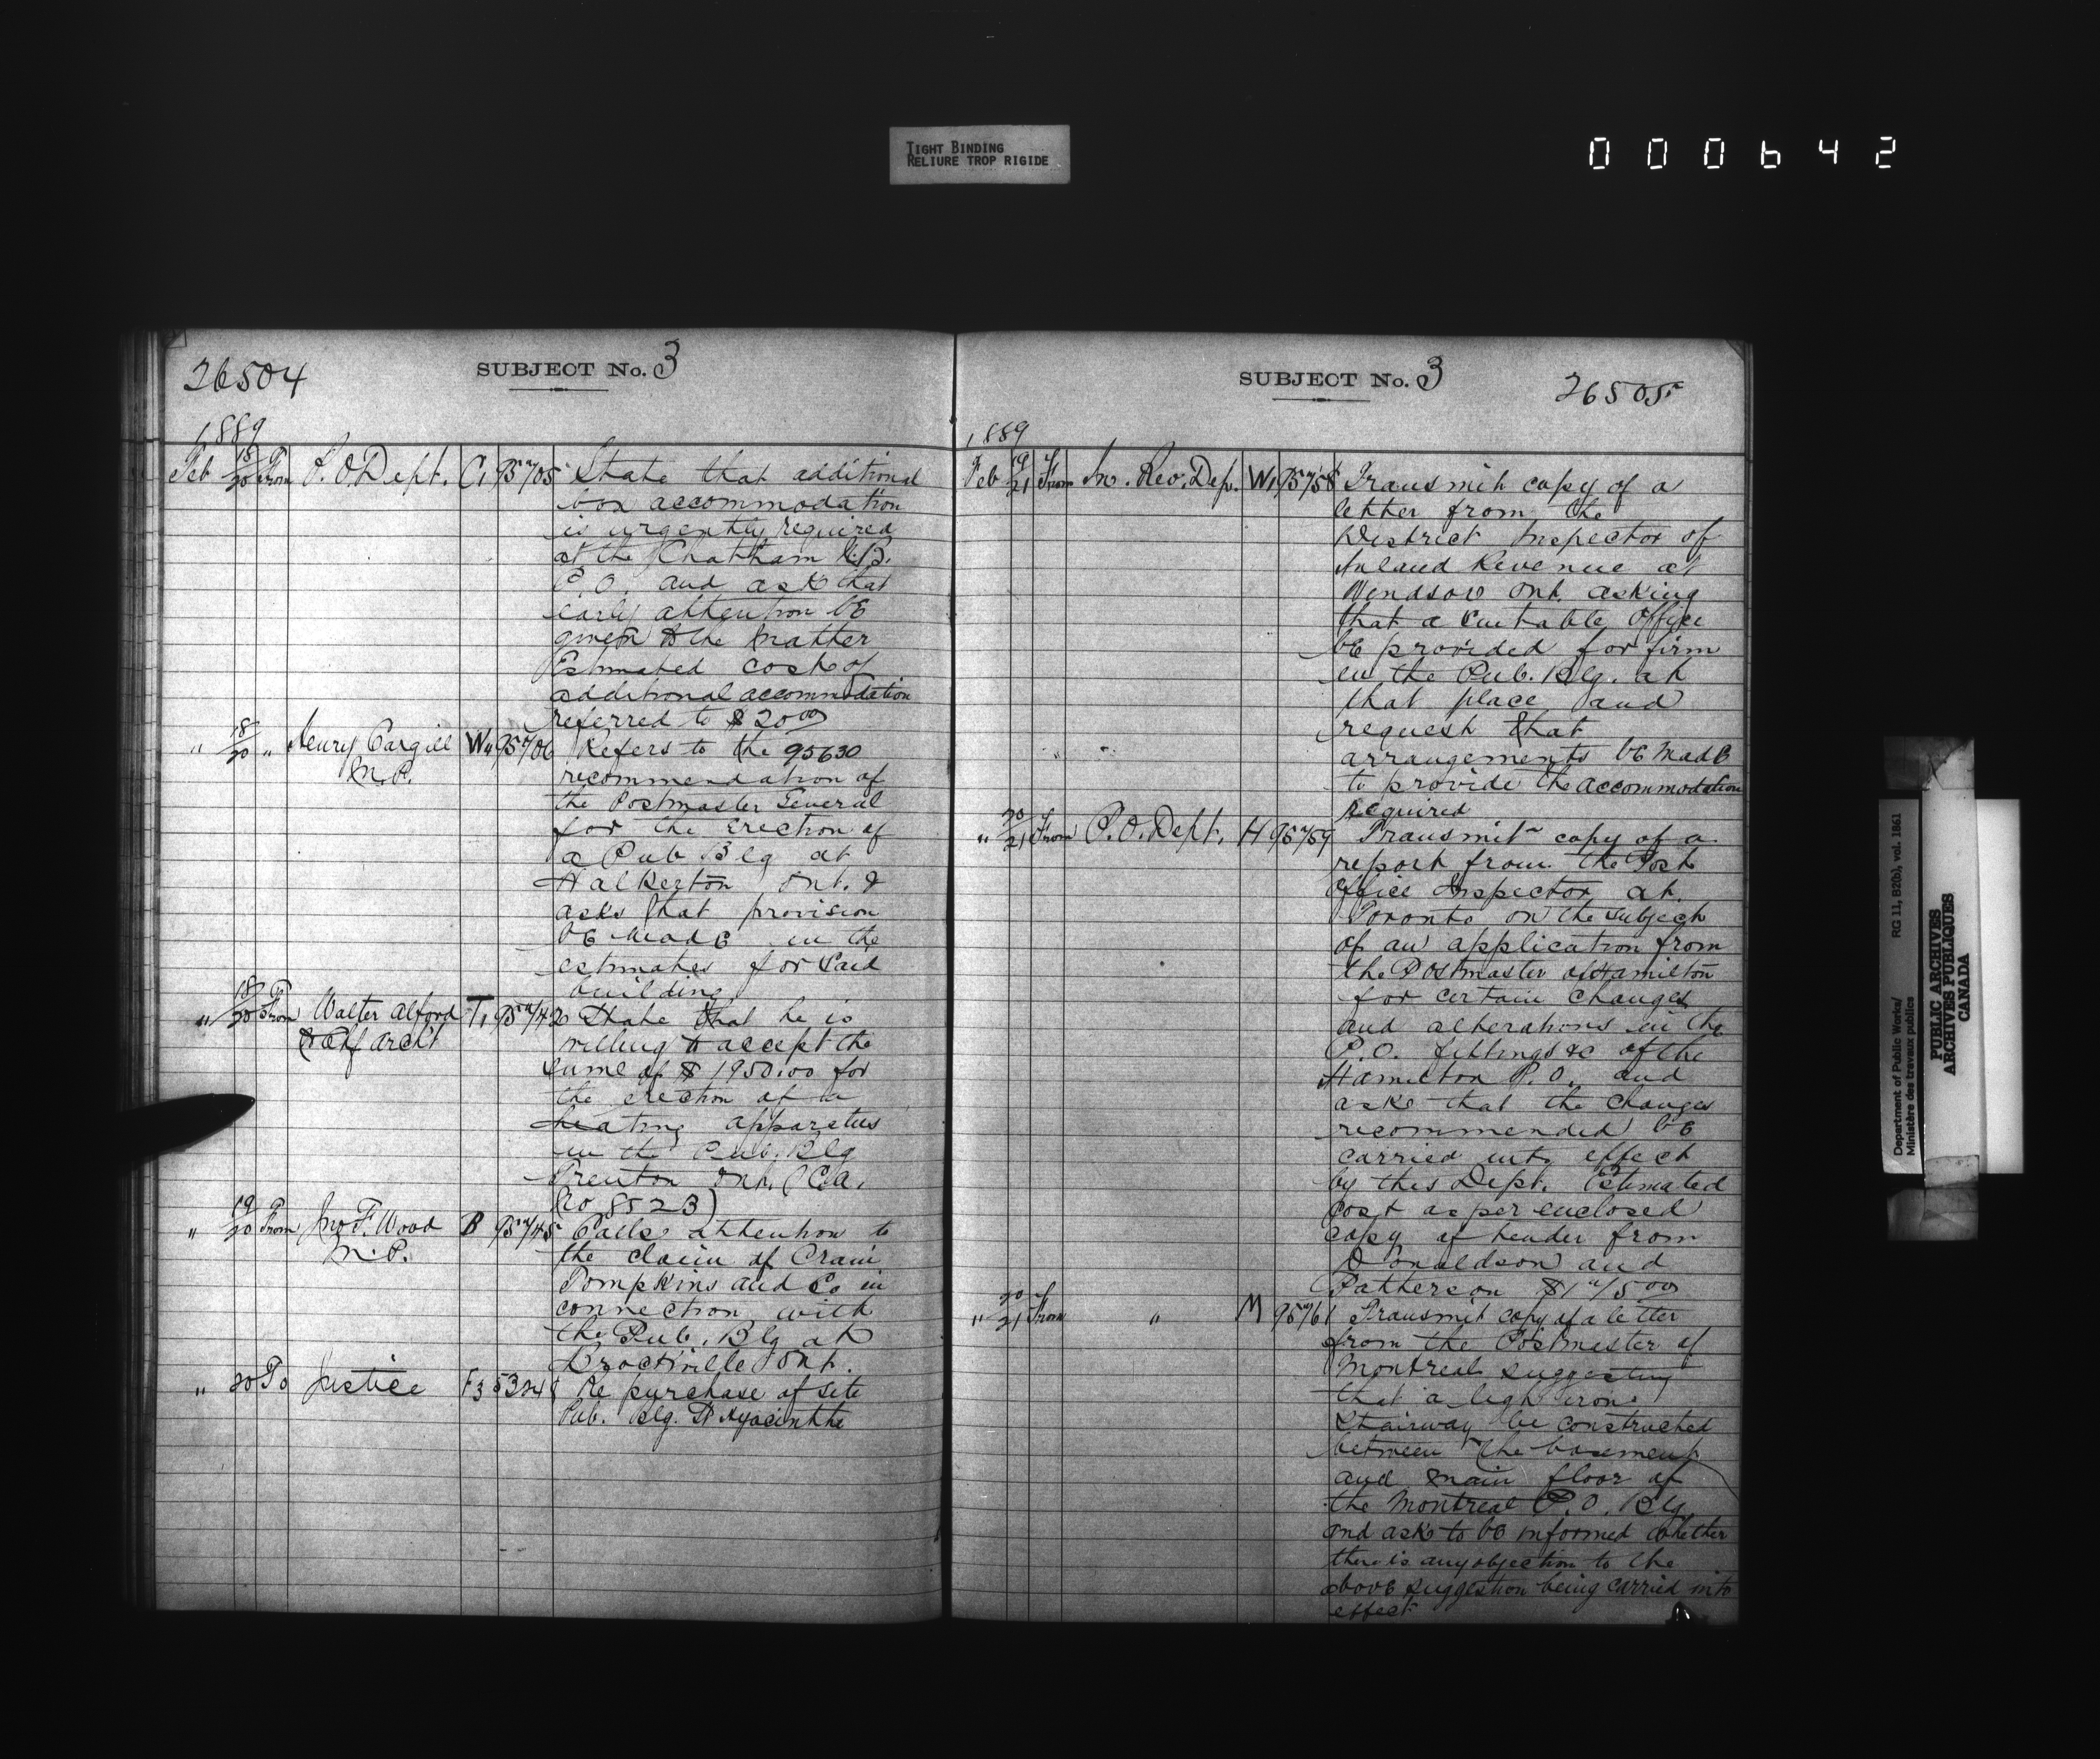 TIGHT BINDING
RELIURE TROP RIGIDE
000642
26504
SUBJECT No. 3
1889
Feb 18/20 From P.O. Dept. C1 95705 State that additional
box accommodation
is urgently required
at the Chatham N.B.
P.O. and ask that
early attention be
given to the matter
Estimated cost of
additional accommodation
referred to $20 00
" 18/20 " Henry Cargill W4 95706 Refers to the 95630
M.P. recommendation of
the Postmaster General
for the erection of
a Pub Blg at
Walkerton Ont. &
asks that provision
be made in the
estimates for said
building
" 18/20 From Walter Alford T1 95742 State that he is
Chf archt willing to accept the
sume of $1950.00 for
the erection of a
heating apparatus
in the Pub. Blg
Trenton Ont. (C.A.
No 8523)
" 19/20 From Jno F. Wood B 95745 Calls attention to
M.P. the claim of Crain
Tompkins and Co in
connection with
the Pub. Blg at
Brockville Ont.
" 20 To Justice F3 Re purchase of site
Pub. Blg. St Hyacinthe
SUBJECT No. 3
26505
1889
Feb 19/21 From In. Rev. Dep. W1 95758 Transmit copy of a
letter from the
District Inspector of
Inland Revenue at
Windsor Ont. asking
that a suitable office
be provided for firm
in the Pub. Blg. at
that place and
request that
arrangements be made
to provide the accommodation
required
" 20/21 From P.O. Dept. H 95759 Transmit copy of a
report from the Post
Office Inspector at
Toronto on the subject
of an application from
the Postmaster of Hamilton
for certain changes
and alterations in the
P.O. fittings &c of the
Hamilton P.O. and
asks that the changes
recommended be
carried into effect
by this Dept. Estimated
cost as per enclosed
copy of tender from
Donaldson and
Patterson $175 00
" 20/21 From " M 95761 Transmit copy of a letter
from the Postmaster of
Montreal suggesting
that a light iron
stairway be constructed
between the basement
and main floor of
the Montreal P.O. Blg.
and ask to be informed whether
there is any objection to the
above suggestion being carried into
effect
Department of Public Works/ RG 11, B2(b), vol. 1861
Ministère des travaux publics
PUBLIC ARCHIVES
ARCHIVES PUBLIQUES
CANADA